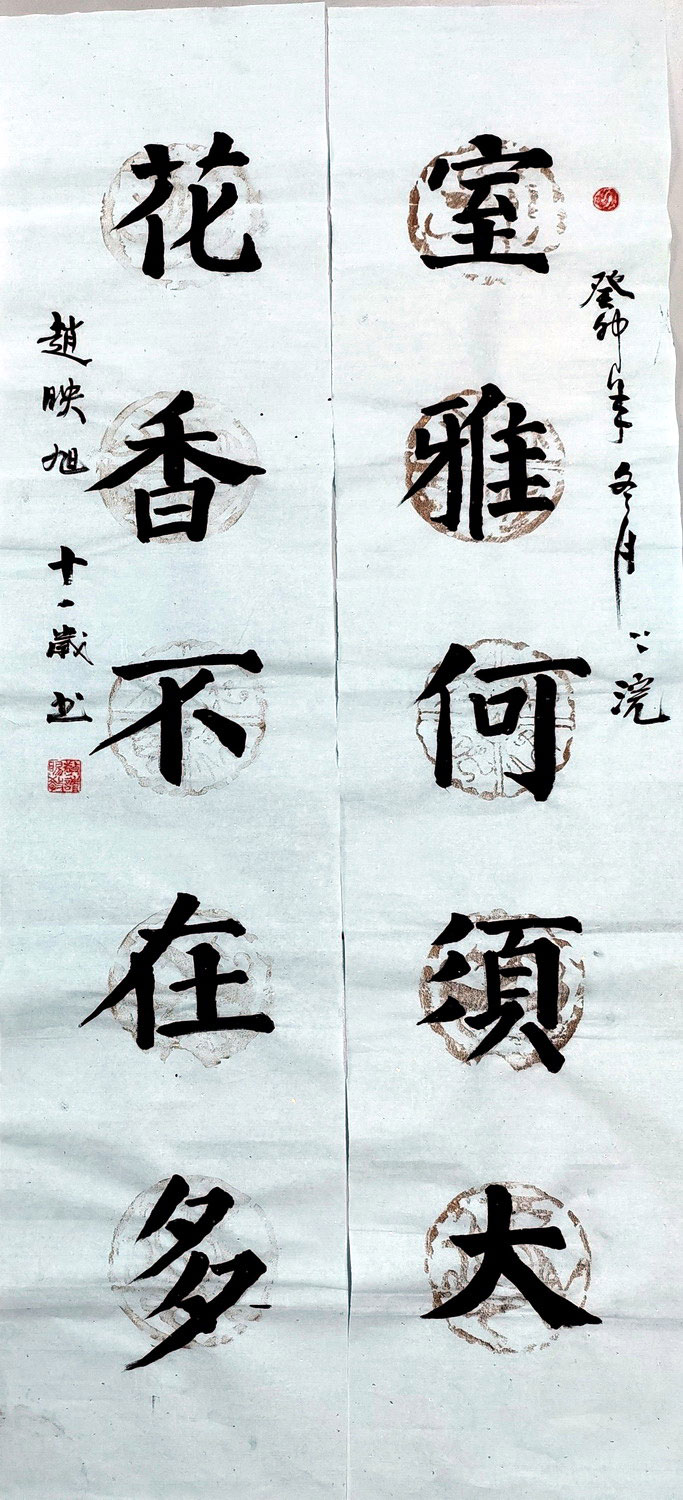 癸卯年冬月
室雅何須大
花香不在多
趙映旭 十一歲书